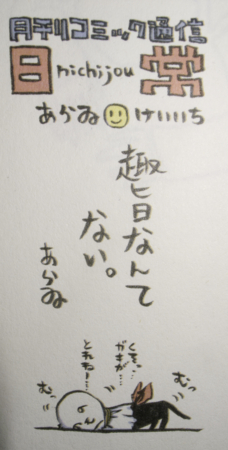 月刊コミック通信
日nichijou常
あらゐけいいち
趣旨なんて
ない。
あらゐ
くそっ…
ガキが…
とれねー…
むっ
むっ